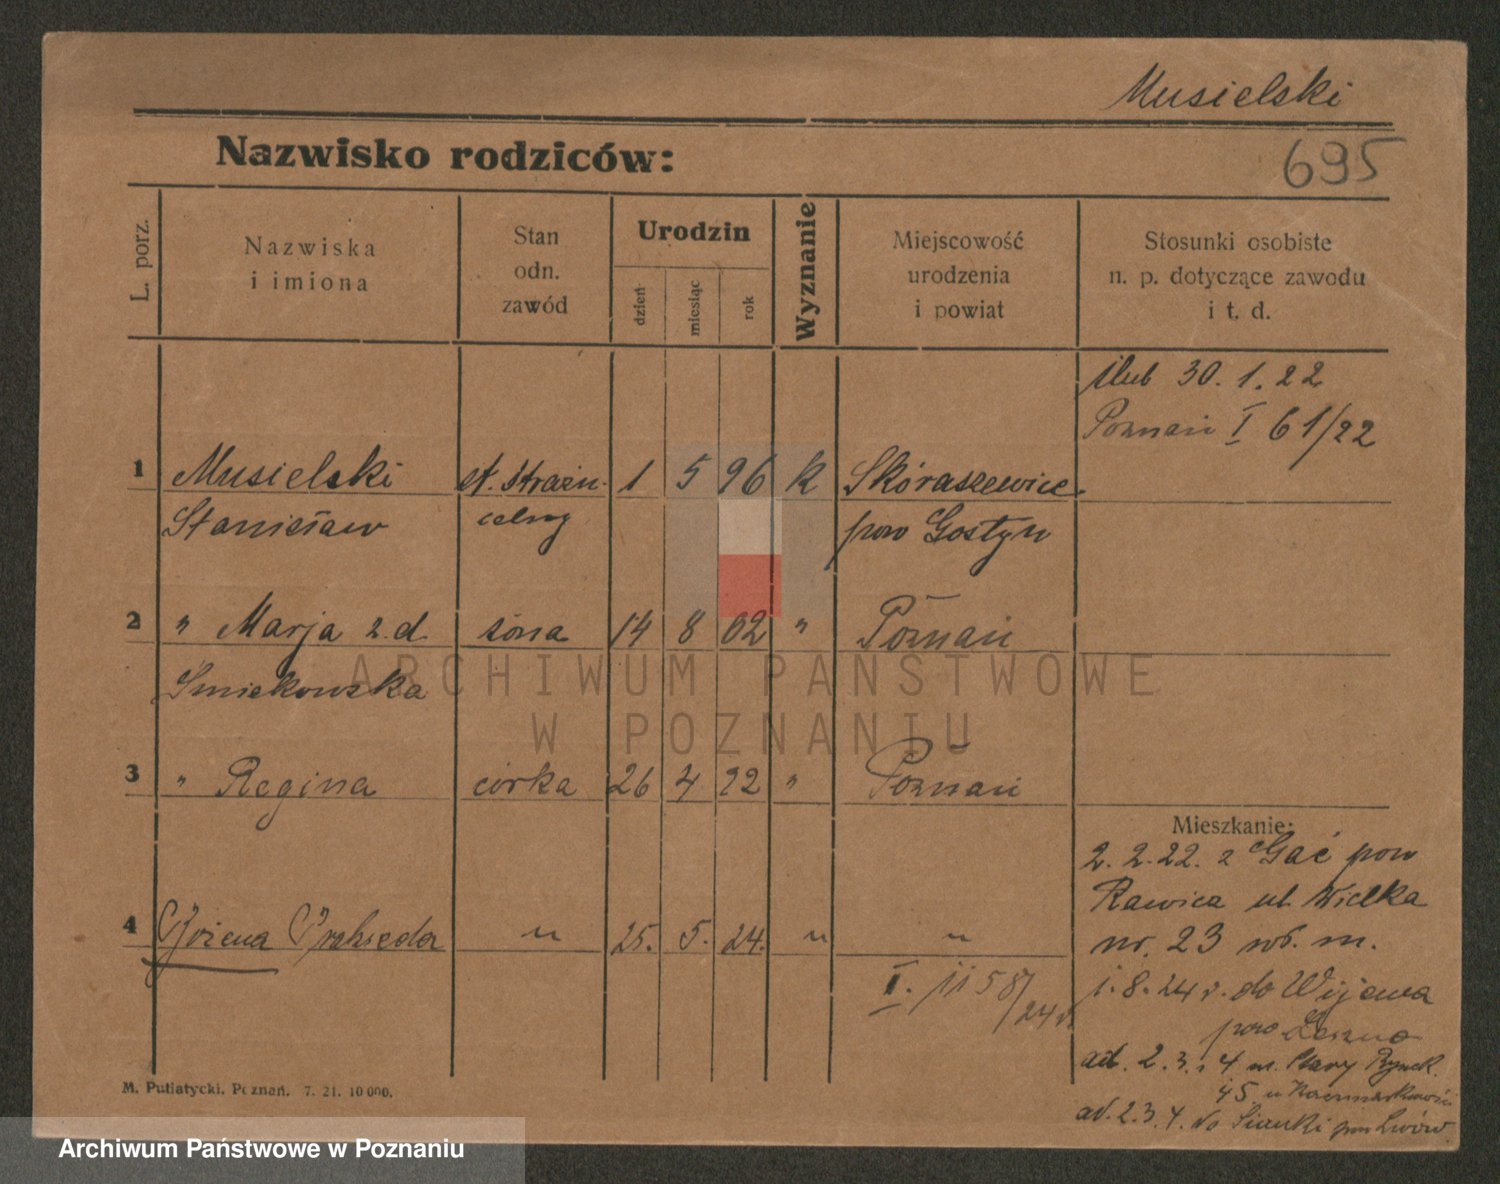 Musielski
Nazwisko rodziców:
695
L. porz.
Nazwiska
i imiona
Stan
odn.
zawód
Urodzin
dzień
miesiąc
rok
Wyznanie
Miejscowość
urodzenia
i powiat
Stosunki osobiste
n. p. dotyczące zawodu
i t. d.
ślub 30. 1. 22
Poznań I 61/22
1 Musielski st. strażn. 1 5 96 k Skóraszewice
Stanisław celny pow Gostyn
2 " Marja z. d. żona 14 8 02 " Poznań
Smiekowska
3 " Regina córka 26 4 22 " Poznań
Mieszkanie:
2. 2. 22. z Gać pow
Rawicz ul. Wielka
4 Bożena Prakseda " 25. 5. 24. " "
nr. 23 m.
I. 1158/24 r.
1. 8. 24 r. do Wijewa
pow Leszno
ad. 2. 3. i 4 Stary Rynek
45 u
ad. 2. 3. 4. do Sianki pow Lwów
M. Putiatycki, Poznań. 7. 21. 10 000.
ARCHIWUM PAŃSTWOWE
W POZNANIU
Archiwum Państwowe w Poznaniu